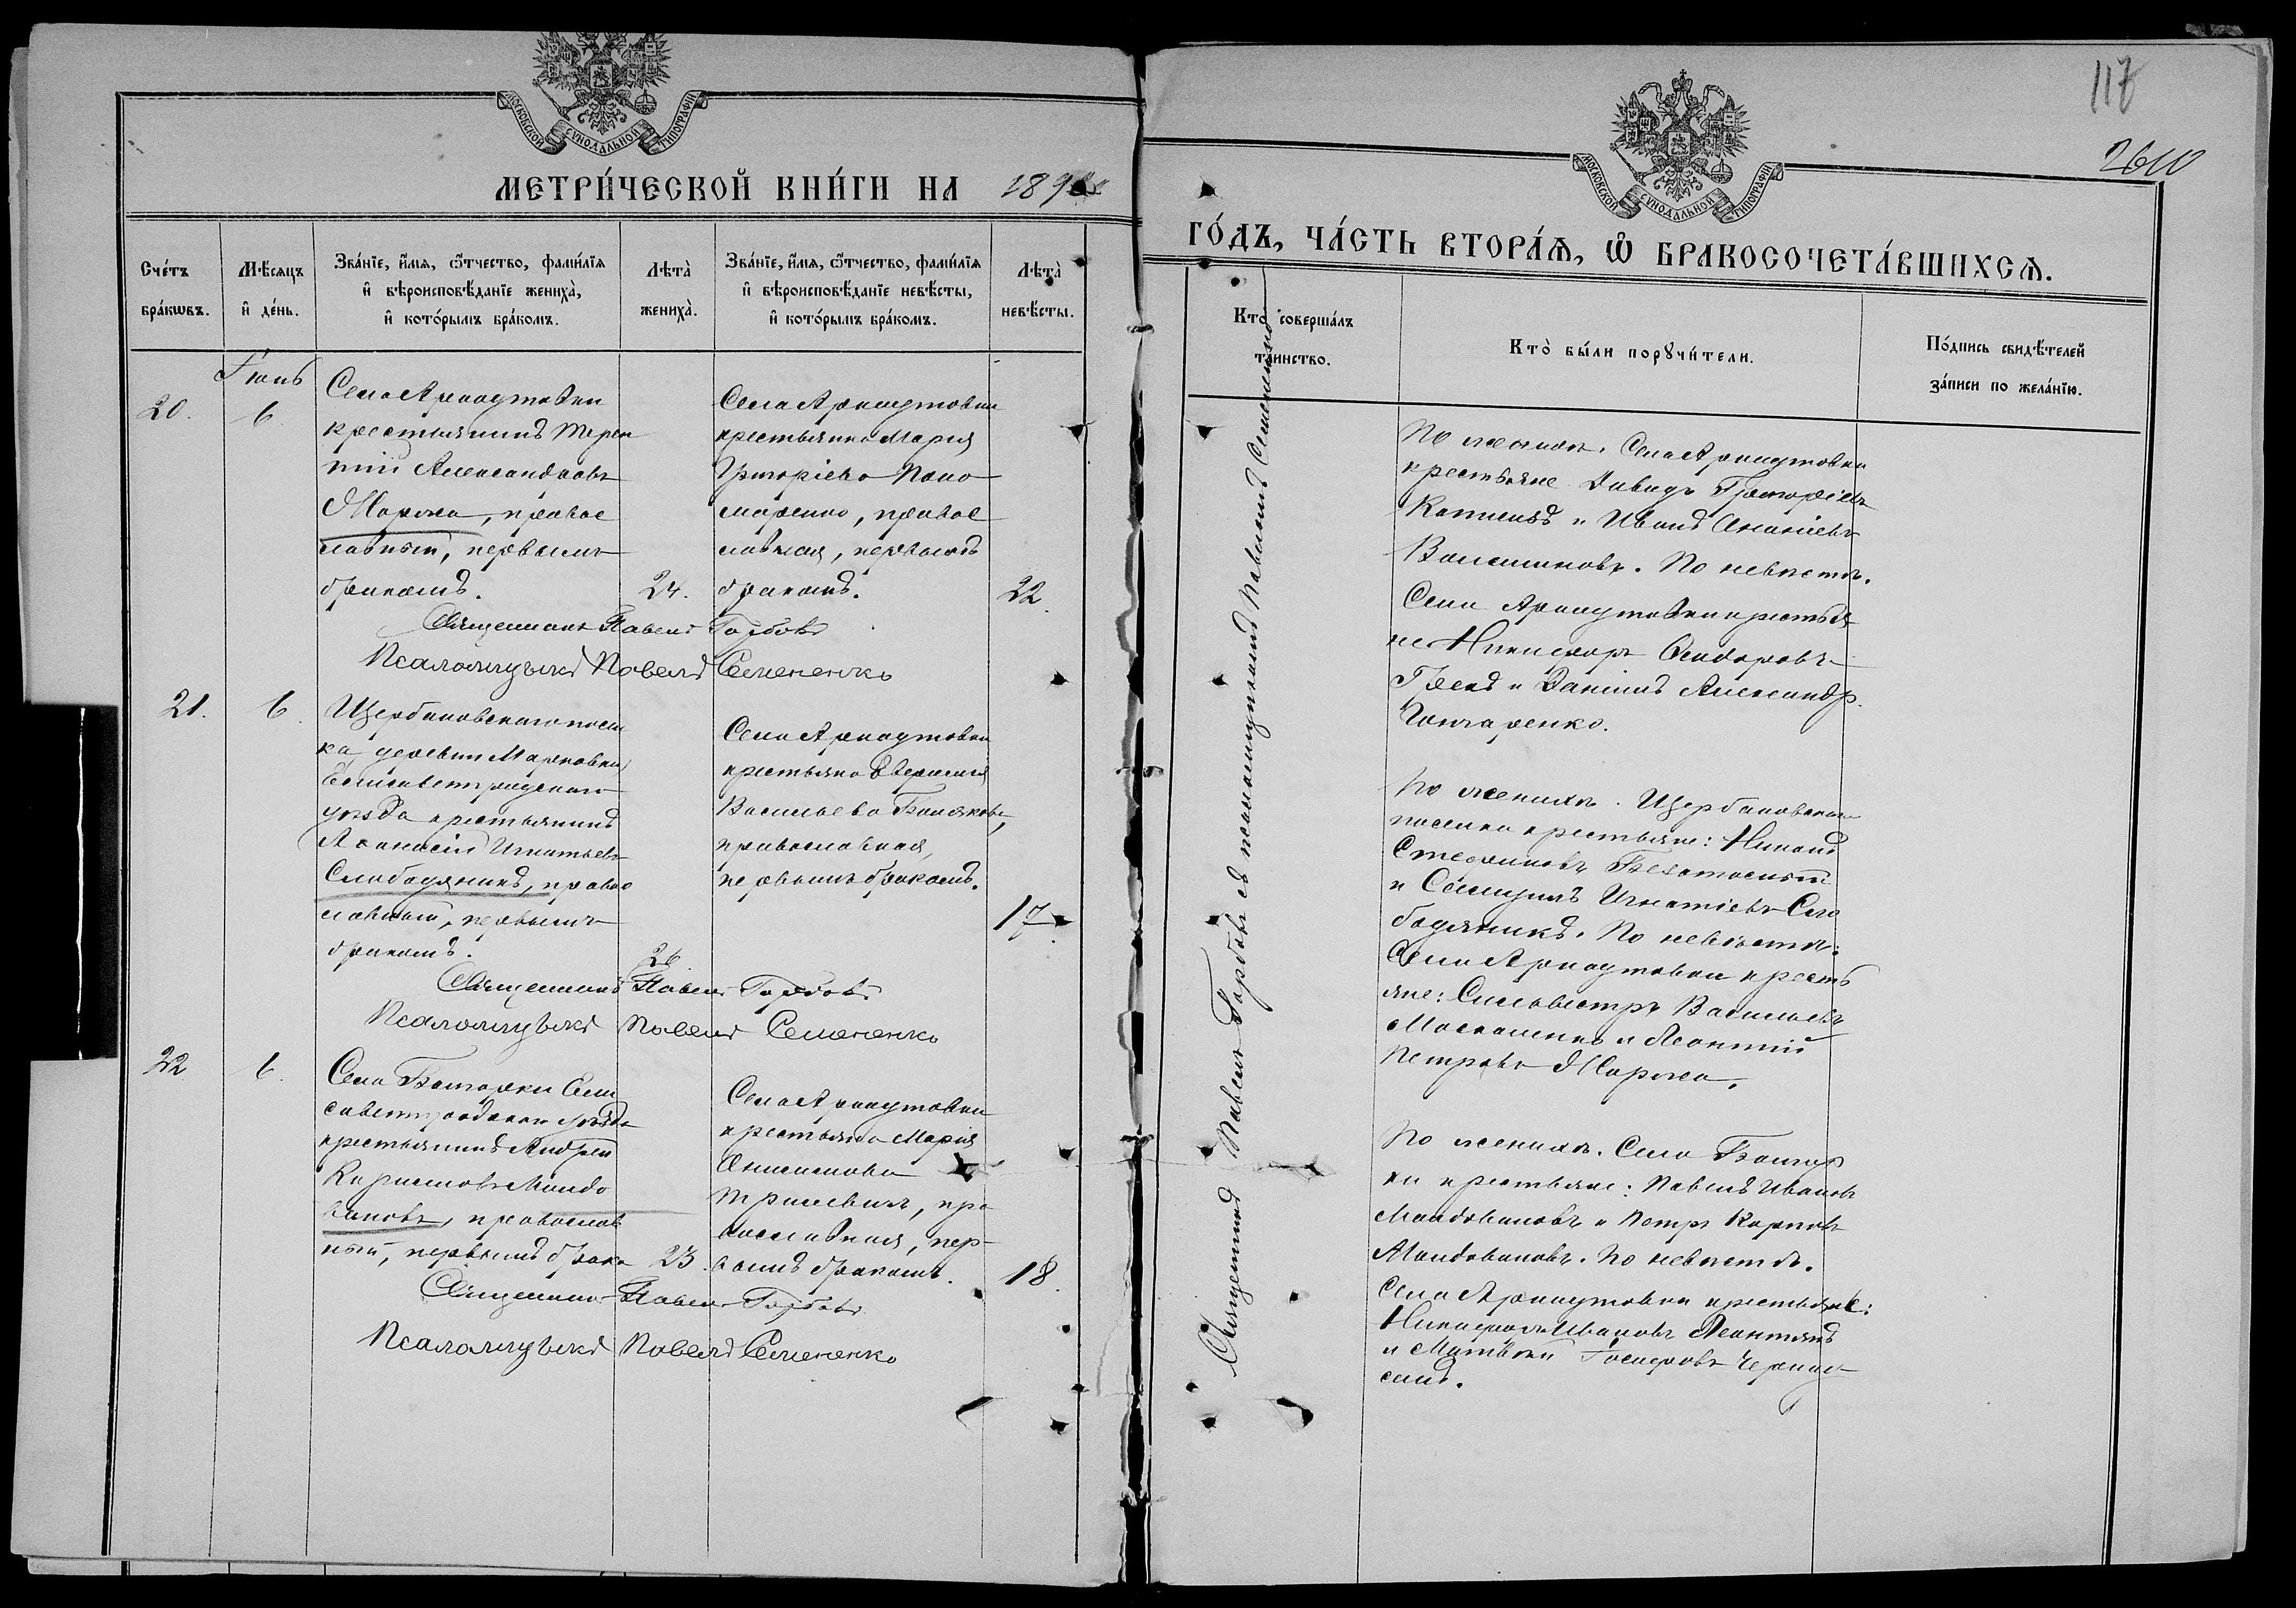 МОСКОВСКОЙ СѴНОДАЛЬНОЙ ТИПОГРАФІИ
МЕТРИ́ЧЕСКОЙ КНИ́ГИ НА 189
Сче́тъ бра́кѡвъ.
Мѣ́сяцъ и҆ де́нь.
Зва́нїе, и҆́мѧ, ѻ҆́тчество, фами́лїѧ и҆ вѣроисповѣ́данїе жениха̀, и҆ кото́рымъ бра́комъ.
Лѣта̀ жениха̀.
Зва́нїе, и҆́мѧ, ѻ҆́тчество, фами́лїѧ и҆ вѣроисповѣ́данїе невѣ́сты, и҆ кото́рымъ бра́комъ.
Лѣта̀ невѣ́сты.
Іюнь
20.
6
Села Арнаутовки
крестьянинъ Терен
тій Александровъ
Моржа, правос
лавный, первымъ
бракомъ.
24.
Села Арнаутовки
крестьянка Марія
Григоріева Поно
маренко, правос
лавная, первымъ
бракомъ.
22.
Священникъ Павелъ Горбовъ
Псаломщикъ Павелъ Семененко
21.
6.
Щербановскаго посел
ка, деревни Марковки,
Елисаветградскаго
уѣзда крестьянинъ
Аѳанасій Игнатьевъ
Слободяникъ, правос
лавный, первымъ
бракомъ.
26.
Села Арнаутовки
крестьянка
Васильева
православная,
первымъ бракомъ.
17.
Священникъ Павелъ Горбовъ
Псаломщикъ Павелъ Семененко
22
6.
Села Елиса
саветградскаго уѣзда
крестьянинъ Андрей
Кириловъ Молдо
вановъ, православ
ный, первымъ брако
23.
Села Арнаутовки
крестьянка Марія
Онисимова
пра
вославная, пер-
вымъ бракомъ.
18.
Священникъ Павелъ Горбовъ
Псаломщикъ Павелъ Семененко
117
2610
МОСКОВСКОЙ СѴНОДАЛЬНОЙ ТИПОГРАФІИ
ГО́ДЪ, ЧА́СТЬ ВТОРА́Ѧ, Ѡ҆ БРАКОСОЧЕТА́ВШИХСѦ.
Кто̀ соверша́лъ та́инство.
Кто̀ бы́ли порꙋчи́тели.
По́дпись свидѣ́телей за́писи по жела́нїю.
Священникъ Павелъ Горбовъ съ псаломщикомъ Павломъ Семененко
По женихѣ. Села Арнаутовки
крестьяне Давидъ Григоріевъ
и Иванъ Ананіевъ
По невѣстѣ.
Села Арнаутовки крестья
не Никифоръ Сидоровъ
Грекъ и Даніилъ Александр.
Гончаренко.
По женихѣ. Щербановскаго
поселка крестьяне: Никонъ
Стефановъ
и Самуилъ Игнатіевъ Сло
бодяникъ. По невѣстѣ:
Села Арнаутовки кресть
яне: Сильвестръ Васильевъ
Москаленко и Леонтій
Петровъ Моржа.
По женихѣ. Села
ки крестьяне: Павелъ Ивановъ
Молдовановъ и Петръ Карповъ
Молдовановъ. По невѣстѣ.
Села Арнаутовки крестьяне:
Никифоръ Ивановъ
и Матвѣй Іосифовъ